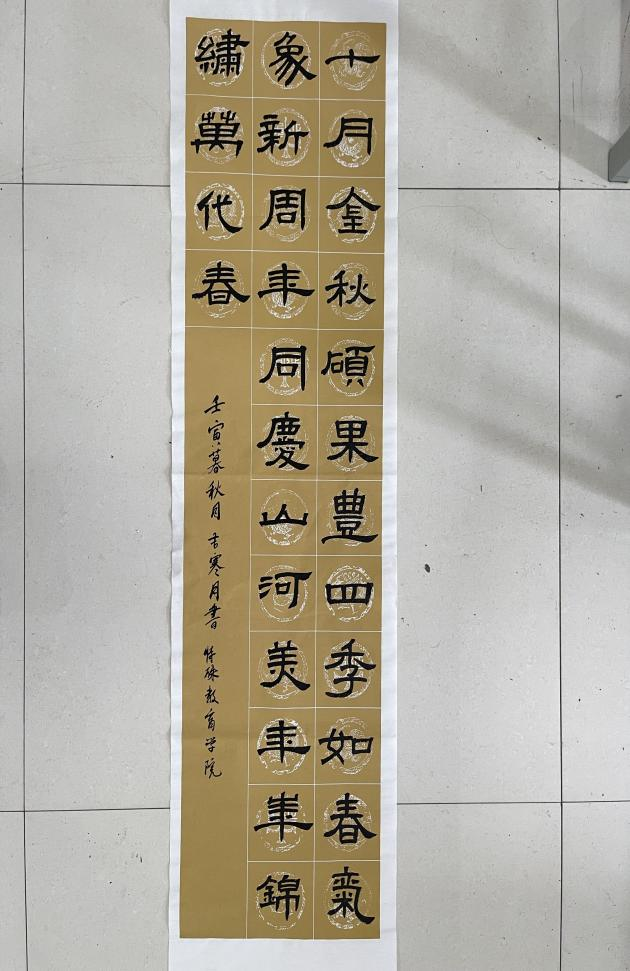 十月金秋碩果豊四季如春氣
象新周年同慶山河美年年錦
繡萬代春
壬寅暮秋月 寒月書 特殊教育学院